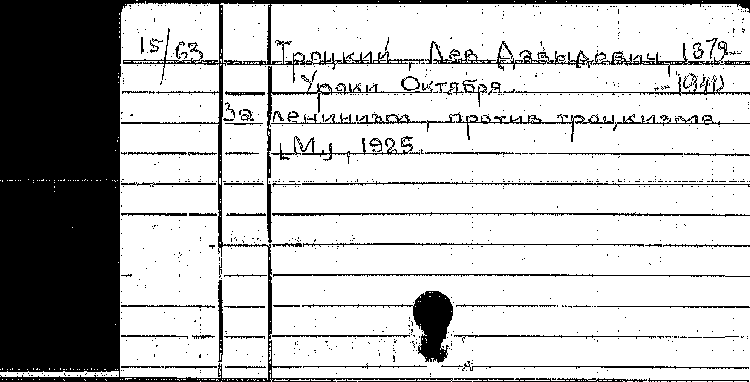 15/63 Троцкий, Лев Давыдович 1879-
Уроки Октября. -1940
За ленинизм, против троцкизма.
[М.], 1925.